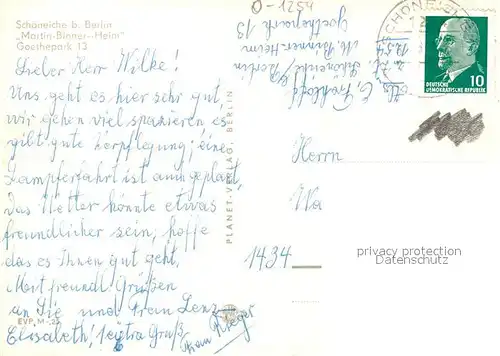 Schöneiche b. Berlin
„Martin-Binner-Heim"
Goethepark 13
Lieber Herr Wilke!
Uns geht es hier sehr gut,
wir gehen viel spazieren es
gibt gute Verpflegung; eine
Dampferfahrt ist auch geplant,
das Wetter könnte etwas
freundlicher sein, hoffe
das es Ihnen gut geht,
Mit freundl Grüßen
an Sie und Frau Lenz
Elisabeth! extra Gruß
Frau
EVP M -,25
PLANET-VERLAG, BERLIN
0-1254
Goethepark 13
M. Binner Heim
Schöneiche b/ Berlin
E.
SCHÖNEICHE
1254
DEUTSCHE
DEMOKRATISCHE REPUBLIK
10
Herrn
Wa
1434
privacy protection
Datenschutz